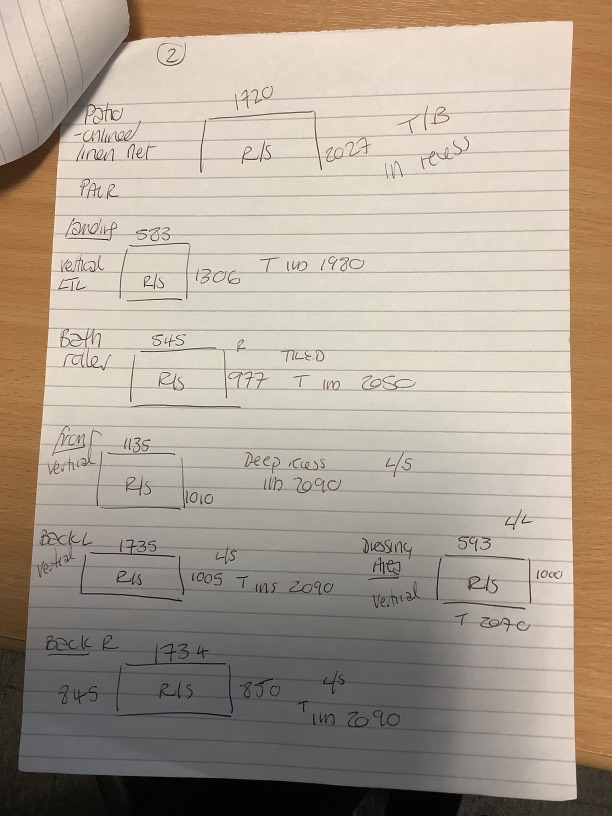 2
1720
Patio
-unlined/
linen net
R/S
2027
T/B
in recess
PAIR
Landing
583
vertical
LTL
R/S
1306
T ins 1980
Bath
roller
545
R
R/S
977
TILED
T ins 2050
front
vertical
1135
R/S
1010
Deep recess
ins 2090
L/S
Back L
vertical
1735
R/S
L/S
1005 T ins 2090
Dressing
Area
vertical
L/L
593
R/S
1000
T 2070
Back R
1734
845
R/S
850
L/S
T ins 2090